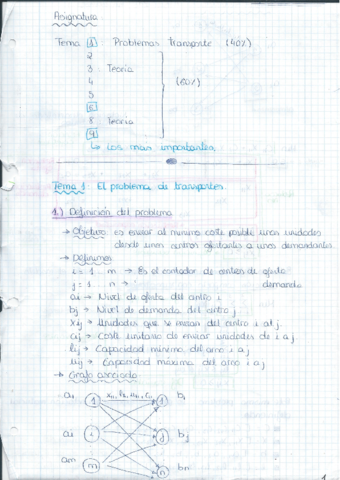 Asignatura
Tema 1 : Problemas transporte (40%)
2
3 Teoria
4 (60%)
5
6
8 Teoria
9
↳ Los mas importantes.
Tema 1: El problema de transportes.
1.) Definición del problema
→ Objetivo es enviar al minimo coste posible unas unidades
desde unos centros ofertantes a unos demandantes.
→ Definimos
i = 1 .. m → Es el contador de centros de oferta
j = 1 .. n → " demanda
ai → Nivel de oferta del centro i
bj → Nivel de demanda del centro j
xij → Unidades que se envian del centro i al j.
cij → Coste unitario de enviar unidades de i a j
lij → Capacidad mínima del arco i a j
uij → Capacidad máxima del arco i a j
→ Grafo asociado
a1 1 x11, l11, u11, c11 1 b1
ai i j bj
am m n bn
1